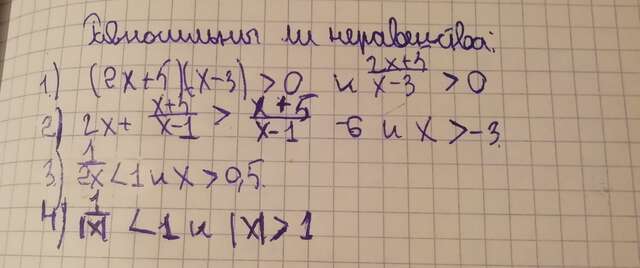 Равносильны ли неравенства:
1.) (2x+5)(x-3) > 0 и (2x+5)/(x-3) > 0
2) 2x + (x+5)/(x-1) > (x+5)/(x-1) -6 и x > -3.
3) 1/(2x) < 1 и x > 0,5.
4) 1/|x| < 1 и |x| > 1